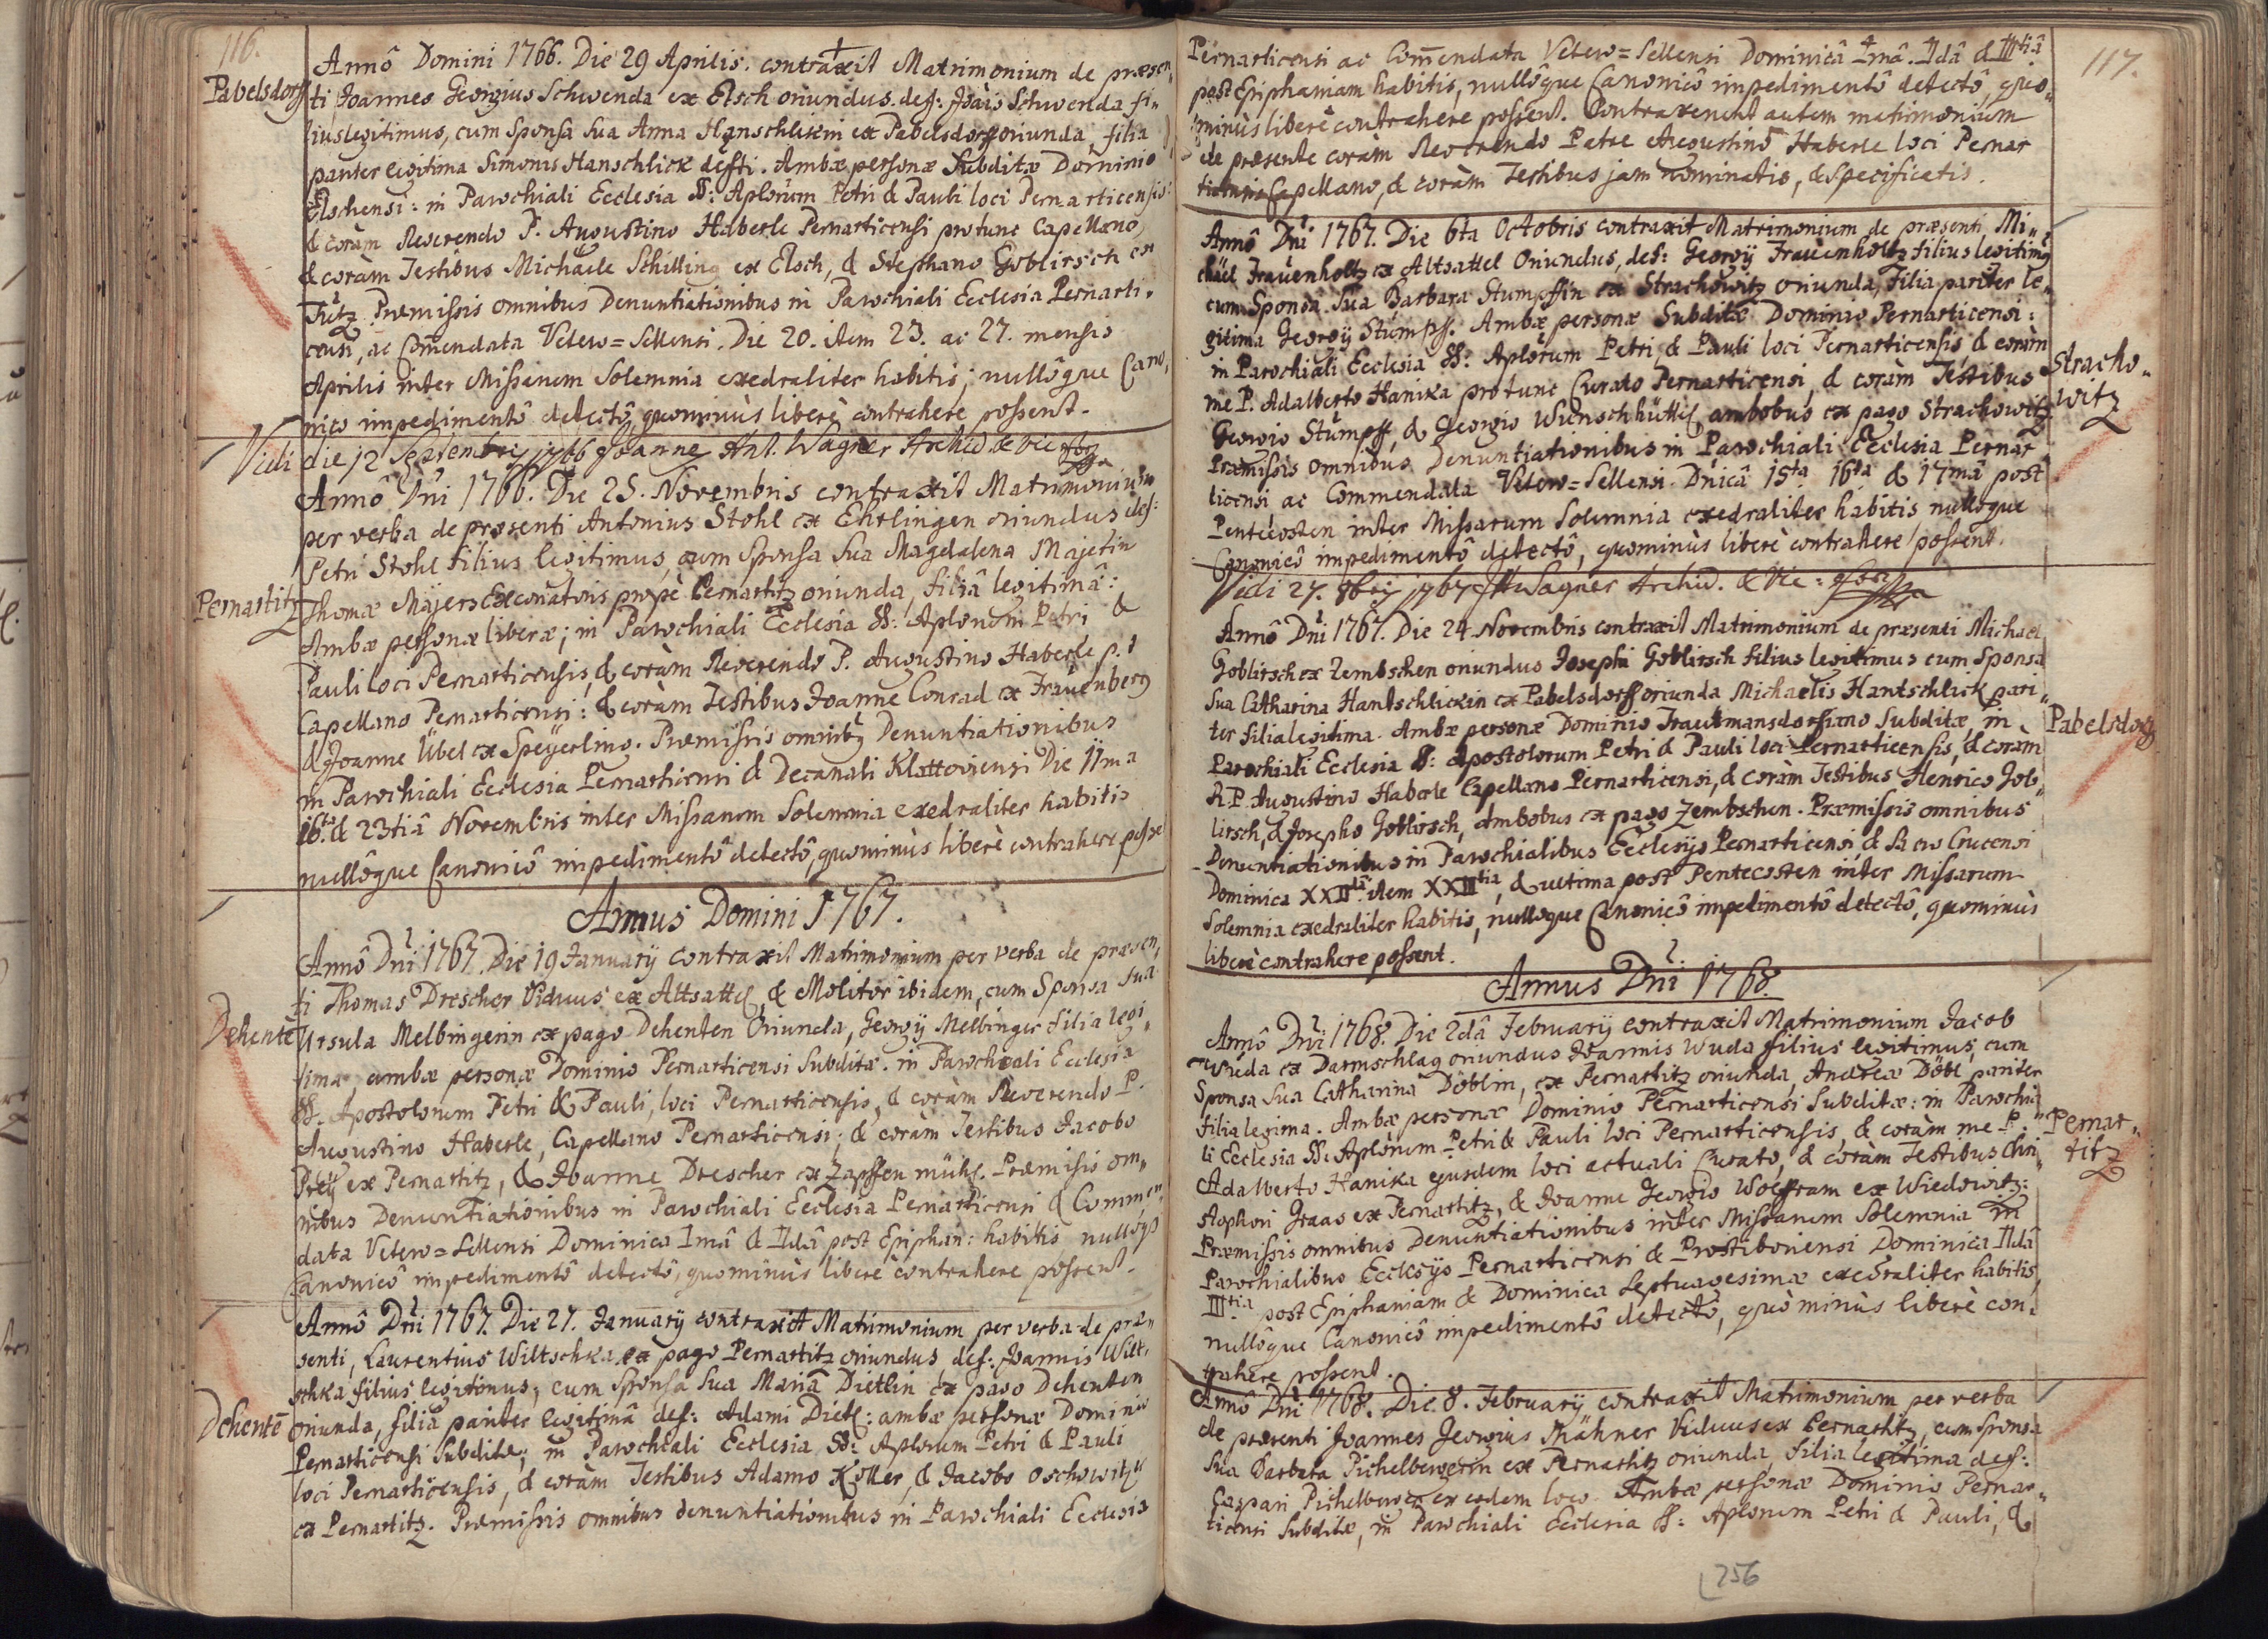 116.
Pabelsdorff
Annô Domini 1766. Die 29 Aprilis. contraxit Matrimonium de præsen„
ti Joannes Georgius Schwenda ex Elsch oriundus. def: Joäis Schwenda fi„
lius legitimus, cum Sponsa Sua Anna Hanschlikin ex Pabelsdorff oriunda, filia
pariter legitima Simonis Hanschlick defti. Ambæ personæ Subditæ Dominio
Elschensi: in Parochiali Ecclesia SS: Aplorum Petri & Pauli loci Pernarticensis:
& coràm Reverendo P. Augustino Haberle Pernarticensi protunc Capellano,
& coràm Testibus Michäele Schilling ex Elsch, & Stephano Goblirsch ex
Tutz. Præmissis omnibus Denuntiationibus in Parochiali Ecclesia Pernarti„
censi, ac Comendata Vetero=Sellensi. Die 20. item 23. ac 27. mensis
Aprilis inter Missarum Solemnia exedraliter habitis; nullôque Cano„
nico impedimentô detectô, quominùs liberè contrahere possent.
Vidi die 12 Septembris 1766 Joannes Ant. Wagner Archid. & Vic
Annô Dni 1766. Die 25. Novembris contraxit Matrimonium
per verba de præsenti Antonius Stohl ex Ehrlingen oriundus def:
Petri Stohl filius legitimus, cum Sponsa Sua Magdalena Majerin
Pernartitz
Thomæ Majers Excoriatoris propè Pernartitz oriunda, filiâ legitimâ:
Ambæ personæ liberæ; in Parochiali Ecclesia SS: Aplorum Petri &
Pauli loci Pernarticensis, & coràm Reverendo P. Augustino Haberle p.t
Capellano Pernarticensi: & coràm Testibus Joanne Conrad ex Frauenberg
& Joanne Übel ex Speÿerling. Præmissis omnibus Denuntiationibus
in Parochiali Ecclesia Pernarticensi & Decanali Klattoviensi Die 11ma
16ta & 23tiâ Novembris inter Missarum Solemnia exedraliter habitis
nullôque Canonicô impedimentô detectô, quominùs liberè contrahere posse
Annus Domini 1767.
Annô Dni 1767. Die 19 Januarÿ contraxit Matrimonium per verba de præsen„
ti Thomas Drescher Viduus ex Altsattel, & Molitor ibidem, cum Sponsa Sua
Dehente
Ursula Melbingerin ex pago Dehenten Oriunda, Georgÿ Melbinger filia legi„
tima, ambæ personæ Dominio Pernarticensi Subditæ. in Parochiali Ecclesia
SS. Apostolorum Petri & Pauli, loci Pernarticensis, & coràm Reverendo P.
Augustino Haberle, Capellano Pernarticensi; & coràm Testibus Jacobo
Preÿ ex Pernartitz, & Joanne Drescher ex Zapffenmühl. Præmissis om„
nibus Denuntiationibus in Parochiali Ecclesia Pernarticensi & Commen„
data Vetero=Sellensi Dominica Imâ & IIdâ post Epiphan: habitis nullôqs
Canonicô impedimentô detectô, quominùs liberè contrahere possent.
Annô Dni 1767. Die 27. Januarÿ contraxit Matrimonium per verba de præ„
senti, Laurentius Wiltschka ex pago Pernartitz oriundus def: Joannis Wilt„
schka filius legitimus, cum Sponsa Sua Mariâ Dietlin ex pago Dehenten
Dehentē
oriunda, filiâ pariter legitimâ def: Adami Dietl: ambæ personæ Dominio
Pernarticensi Subditæ; in Parochiali Ecclesia SS: Aplorum Petri & Pauli
loci Pernarticensis, & coràm Testibus Adamo Koller, & Jacobo Oschowitzkÿ
ex Pernartitz. Præmissis omnibus denuntiationibus in Parochiali Ecclesia
117.
Pernarticensi ac Comendata Vetero=Sellensi Dominicâ Imâ. IIdâ & IIItiâ
post Epiphaniam habitis, nullôque Canonicô impedimentô detectô, quo„
minùs liberè contrahere possent. Contraxerunt autem matrimonium
de præsente coràm Reverendo Patre Augustinô Haberle loci Pernar
ticensis Capellano, & coràm Testibus jam nominatis, & Specificatis.
Annô Dni 1767. Die 6ta Octobris contraxit Matrimonium de præsenti Mi„
chäel Frauenholtz ex Altsattel Oriundus, def: Georgÿ Frauenholtz filius legitimus
cum Sponsa Sua Barbara Stumpffin ex Strachowitz oriunda, Filia pariter le„
gitima Georgÿ Stumpff. Ambæ personæ Subditæ Dominio Pernarticensi:
in Parochiali Ecclesia SS: Aplorum Petri, & Pauli loci Pernarticensis, & coràm
Stracho„
witz
me P. Adalberto Hanika protunc Curato Pernarticensi, & coràm Testibus
Georgio Stumpff, & Georgio Wunschhüttl, ambobus ex pago Strachowitz
Præmissis omnibus Denuntiationibus in Parochiali Ecclesia Pernar
ticensi ac Commendata Vetero=Sellensi. Dnicâ 15ta 16ta & 17mâ post
Pentecosten inter Missarum Solemnia exedraliter habitis nullôque
Canonicô impedimentô detectô, quominùs liberè contrahere possent.
Vidi 27. 8bris 1767 Wagner Archid. & Vic:
Annô Dni 1767. Die 24 Novembris contraxit Matrimonium de præsenti Michael
Goblirsch ex Zembschen oriundus Josephi Goblirsch filius legitimus cum Sponsa
Sua Catharina Hantschlickin ex Pabelsdorff oriunda Michaelis Hantschlick pari„
Pabelsdorf
ter filia legitima. Ambæ personæ Dominio Trautmansdorfiano Subditæ, in
Parochiali Ecclesia SS: Apostolorum Petri & Pauli loci Pernarticensis, & coràm
R.P. Augustino Haberle Capellano Pernarticensi, & coràm Testibus Henrico Gob„
lirsch, & Josepho Goblirsch, ambobus ex pago Zembschen. Præmissis omnibus
Denuntiationibus in Parochialibus Ecclesÿs Pernarticensi, & S. Crucensi
Dominica XXIIda item XXIIItia, & ultima post Pentecosten inter Missarum
Solemnia exedraliter habitis, nullôque Canonicô impedimentô detectô, quominùs
liberè contrahere possent.
Annus Dni 1768.
Annô Dni 1768. Die 2dâ Februarÿ contraxit Matrimonium Jacob
Wuda ex Darmschlag oriundus Joannis Wuda filius legitimus, cum
Sponsa Sua Catharina Döblin, ex Pernartitz oriunda, Andreæ Döbl pariter
filia legima. Ambæ personæ Dominio Pernarticensi Subditæ: in Parochia
Pernar„
titz
li Ecclesia SS: Aplorum Petri & Pauli loci Pernarticensis, & coràm me P.
Adalberto Hanika ejusdem loci actuali Curato, & coràm Testibus Chri„
stophori Graas ex Pernartitz, & Joanne Georgio Wolffram ex Wiedowitz:
Præmissis omnibus Denuntiationibus inter Missarum Solemnia in
Parochialibus Ecclesÿs Pernarticensi & Prostiboriensi Dominica IIdâ
IIItia post Epiphaniam & Dominica Septuagesimæ exedraliter habitis,
nullôque Canonicô impedimentô detectô, quò minùs liberè con„
trahere possent.
Annô Dni 1768. Die 8. Februarÿ contraxit Matrimonium per verba
de præsenti Joannes Georgius Kähner Viduus ex Pernartitz, cum Sponsa
Sua Barbara Pichelbergerin ex Pernartitz oriunda, filia legitima def:
Caspari Pichelberger ex eodem loco. Ambæ personæ Dominio Pernar„
ticensi Subditæ, in Parochiali Ecclesia SS: Aplorum Petri & Pauli, &
256